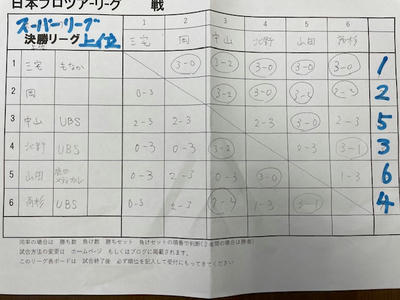 日本プロツアーリーグ 戦
スーパーリーグ
決勝リーグ 上位
1 2 3 4 5 6
三宅 岡 中山 北野 山田 高杉
1 三宅 もなか 3-0 3-2 3-0 3-0 3-0 1
2 岡 0-3 3-2 3-0 3-2 2
3 中山 UBS 2-3 2-3 2-3 3-0 2-3 5
4 北野 UBS 0-3 0-3 3-2 0-3 3-1 3
5 山田 0-3 2-3 0-3 3-0 1-3 6
6 高杉 UBS 0-3 2-3 3-2 1-3 4
同率の場合は 勝ち数 負け数 勝ちセット 負けセットの順番で判断(2者間の場合は勝者)
試合方法の変更は ホームページ もしくはブログに掲載されます。
このリーグ表ボードは 試合終了後 必ず順位を記入して受付にもってきてください